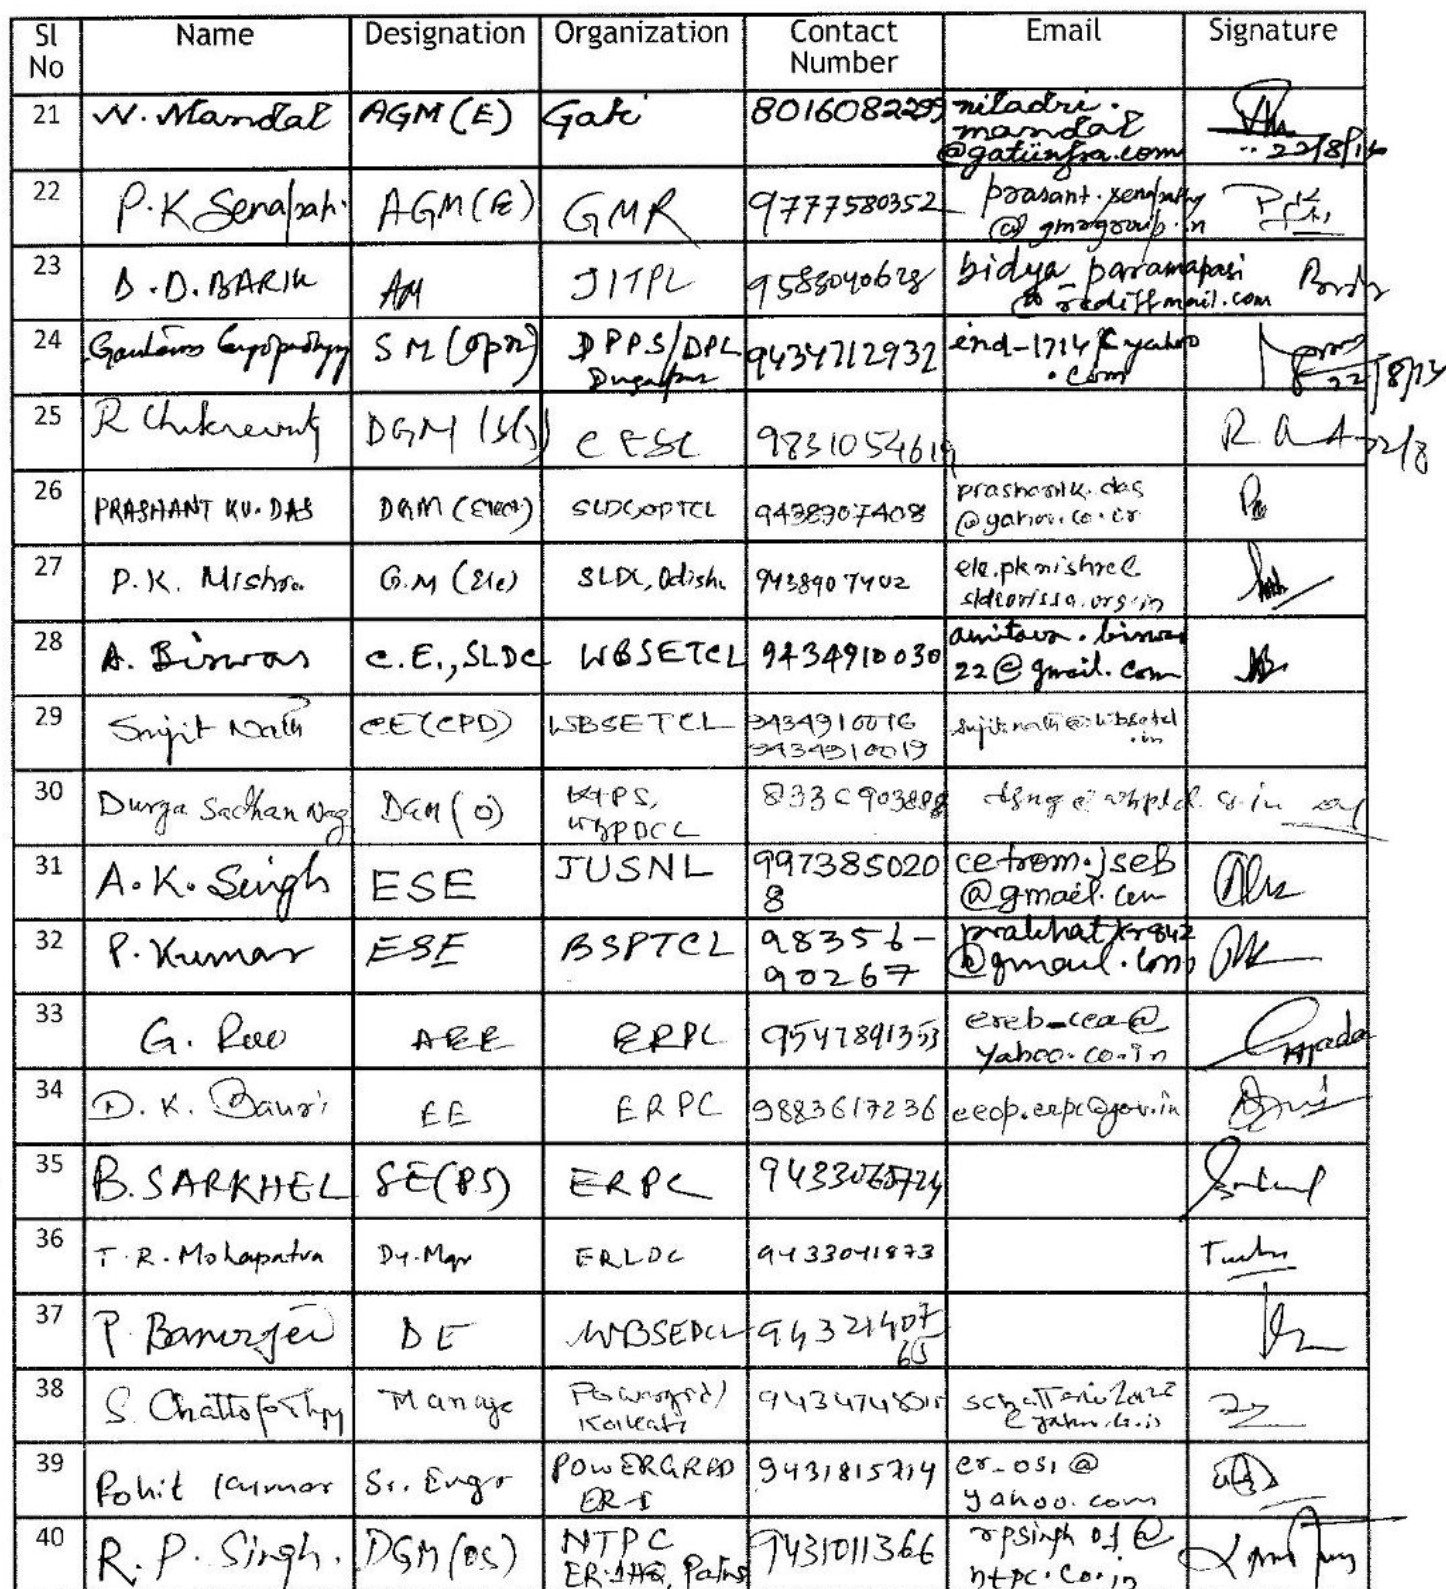 Sl No Name Designation Organization Contact Number Email Signature
21 N. Mandal AGM (E) Gati 8016082299 niladri.
mandal
@gatiinfra.com
22/8/14
22 P.K Senapati AGM (E) GMR 9777580352 prasant.senapaty
@gmrgroup.in
23 D.D. BARIK AM JITPL 9583040628 bidya_paramapasi
@rediffmail.com
24 Gautam SM (opn) DPPS/DPL 9434712932 end-1714@yahoo
Durgapur .com
22/8/14
25 R Chakraverty DGM CESC 9831054619 22/8
26 PRASHANT KU. DAS DGM (Elect.) SLDC,OPTCL 9438907408 prashantk.das
@yahoo.co.in
27 P.K. Mishra G.M (Ele) SLDC, Odisha 9438907402 ele.pkmishra@
sldcorissa.org.in
28 A. Biswas C.E., SLDC WBSETCL 9434910030 amitava.biswas
22@gmail.com
29 Sujit Nath CE (CPD) WBSETCL 9434910016 sujit.nath@wbsetcl
9434910019 .in
30 Durga Sadhan Nag DGM (O) KTPS,
WBPDCL
31 A.K. Singh ESE JUSNL 997385020 cetrom.jseb
8 @gmail.com
32 P. Kumar ESE BSPTCL 98356- prabhatkr842
90267 @gmail.com
33 G. Rao AEE ERPC 9547891353 ereb_cea@
yahoo.co.in
34 D.K. Bauri EE ERPC 9883617236 eeop.erpc@gov.in
35 B. SARKHEL SE(PS) ERPC
36 T.R. Mohapatra Dy. Mgr ERLDC 9433041873
37 P. Banerjee DE WBSEDCL 94321407
65
38 S. Chattopadhyay Manager Powergrid/
Kolkata
39 Rohit Kumar Sr. Engr POWERGRID 9431815714 er_os1@
ER-I yahoo.com
40 R.P. Singh. DGM (OS) NTPC 9431011366 rpsingh01@
ER-1HQ, Patna ntpc.co.in